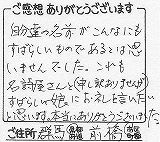 ご感想ありがとうございます
自分達の名前がこんなにも
すばらしいものであるとは思
いませんでした。これも
名詩屋さんと(申し訳ありませんが)
すばらしい娘にお礼を言いたい
思います。本当にありがとうございました
ご住所 群馬 県 前橋 市